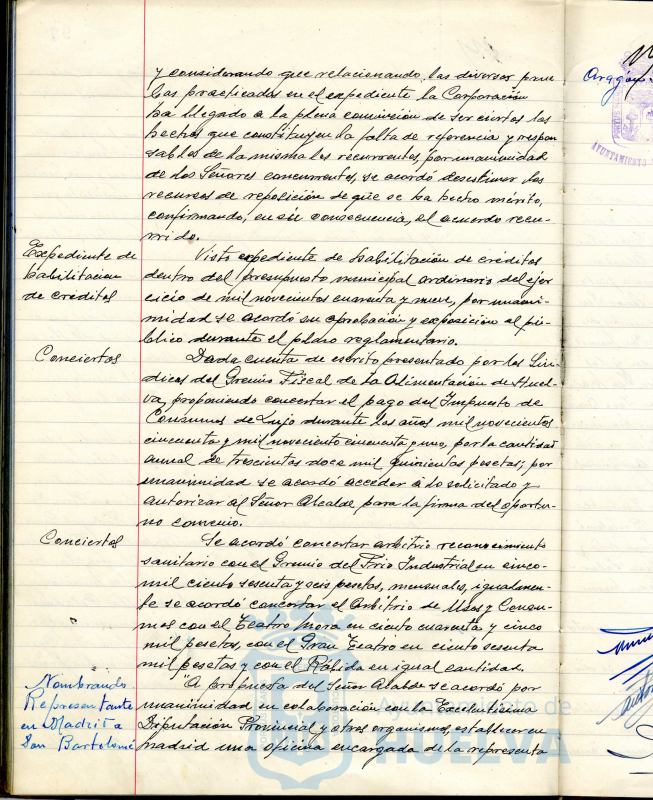 y considerando que relacionando las diversas prue
bas practicadas en el expediente la Corporación
ha llegado a la plena convicción de ser ciertos los
hechos que constituyen la falta de referencia y respon
sables de la misma los recurrentes, por unanimidad
de los Señores concurrentes, se acordó desestimar los
recursos de reposición de que se ha hecho mérito,
confirmando, en su consecuencia, el acuerdo recu-
rrido.
Expediente de
habilitacion
de créditos
Visto expediente de habilitación de créditos
dentro del presupuesto municipal ordinario del ejer
cicio de mil novecientos cuarenta y nueve, por unani-
midad se acordó su aprobación y exposición al pú-
blico durante el plazo reglamentario.
Conciertos
Dada cuenta de escrito presentado por los Sín-
dicos del Gremio Fiscal de la Alimentación de Huel-
va, proponiendo concertar el pago del Impuesto de
Consumos de Lujo durante los años mil novecientos
cincuenta y mil noveciento cincuenta y uno, por la cantidad
anual de trescientas doce mil quinientas pesetas; por
unanimidad se acordó acceder a lo solicitado y
autorizar al Señor Alcalde para la firma del oportu-
no convenio.
Conciertos
Se acordó concertar arbitrio reconocimiento
sanitario con el Gremio del Frio Industrial en cinco
mil ciento sesenta y seis pesetas, mensuales, igualmen-
te se acordó concertar el Arbitrio de Usos y Consu-
mos con el Teatro Mora en ciento cuarenta y cinco
mil pesetas, con el Gran Teatro en ciento sesenta
mil pesetas y con el Rábida en igual cantidad.
Nombrando
Representante
en Madrid a
Don Bartolomé
"A propuesta del Señor Alcalde se acordó por
unanimidad en colaboración con la Excelentísima
Diputación Provincial y otros organismos, establecer en
Madrid una oficina encargada de la representa
Ayuntamiento de
HUELVA
AYUNTAMIENTO